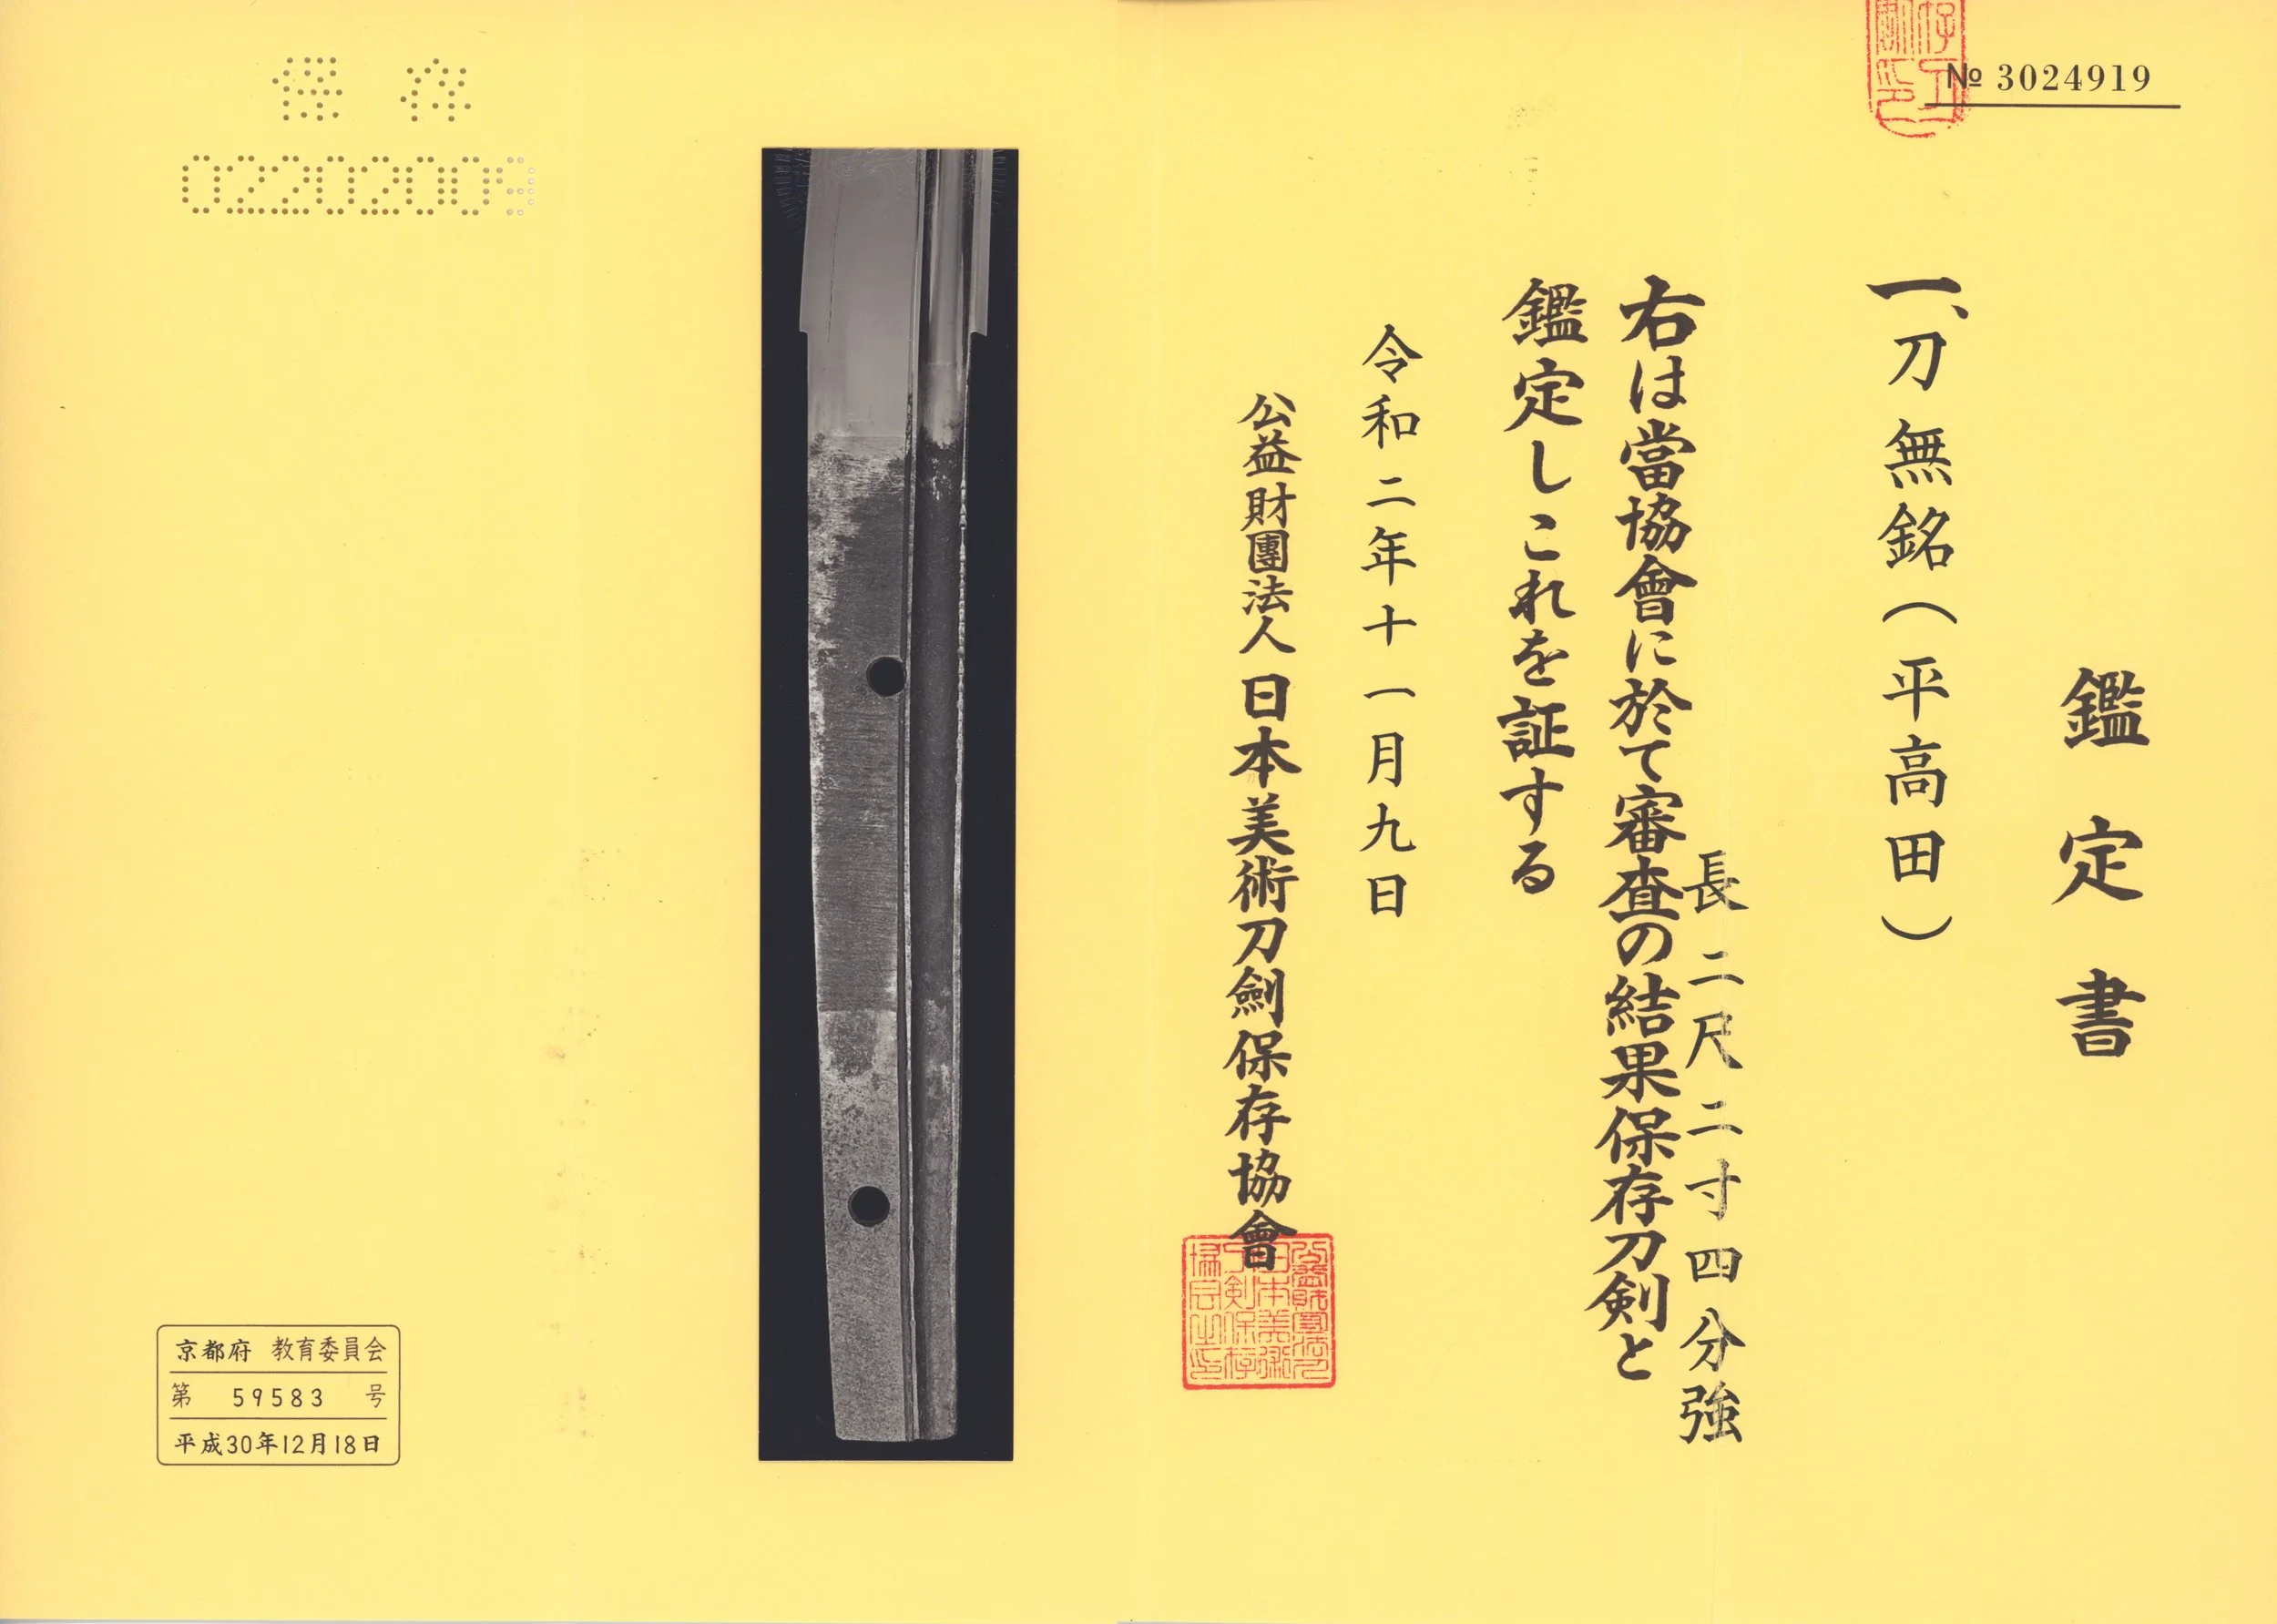 № 3024919
鑑定書
一、刀 無銘（平高田）
長 二尺二寸四分強
右は當協會に於て審査の結果保存刀剣と
鑑定しこれを証する
令和二年十一月九日
公益財團法人 日本美術刀劍保存協會
保存
02202009
京都府 教育委員会
第 59583 号
平成30年12月18日